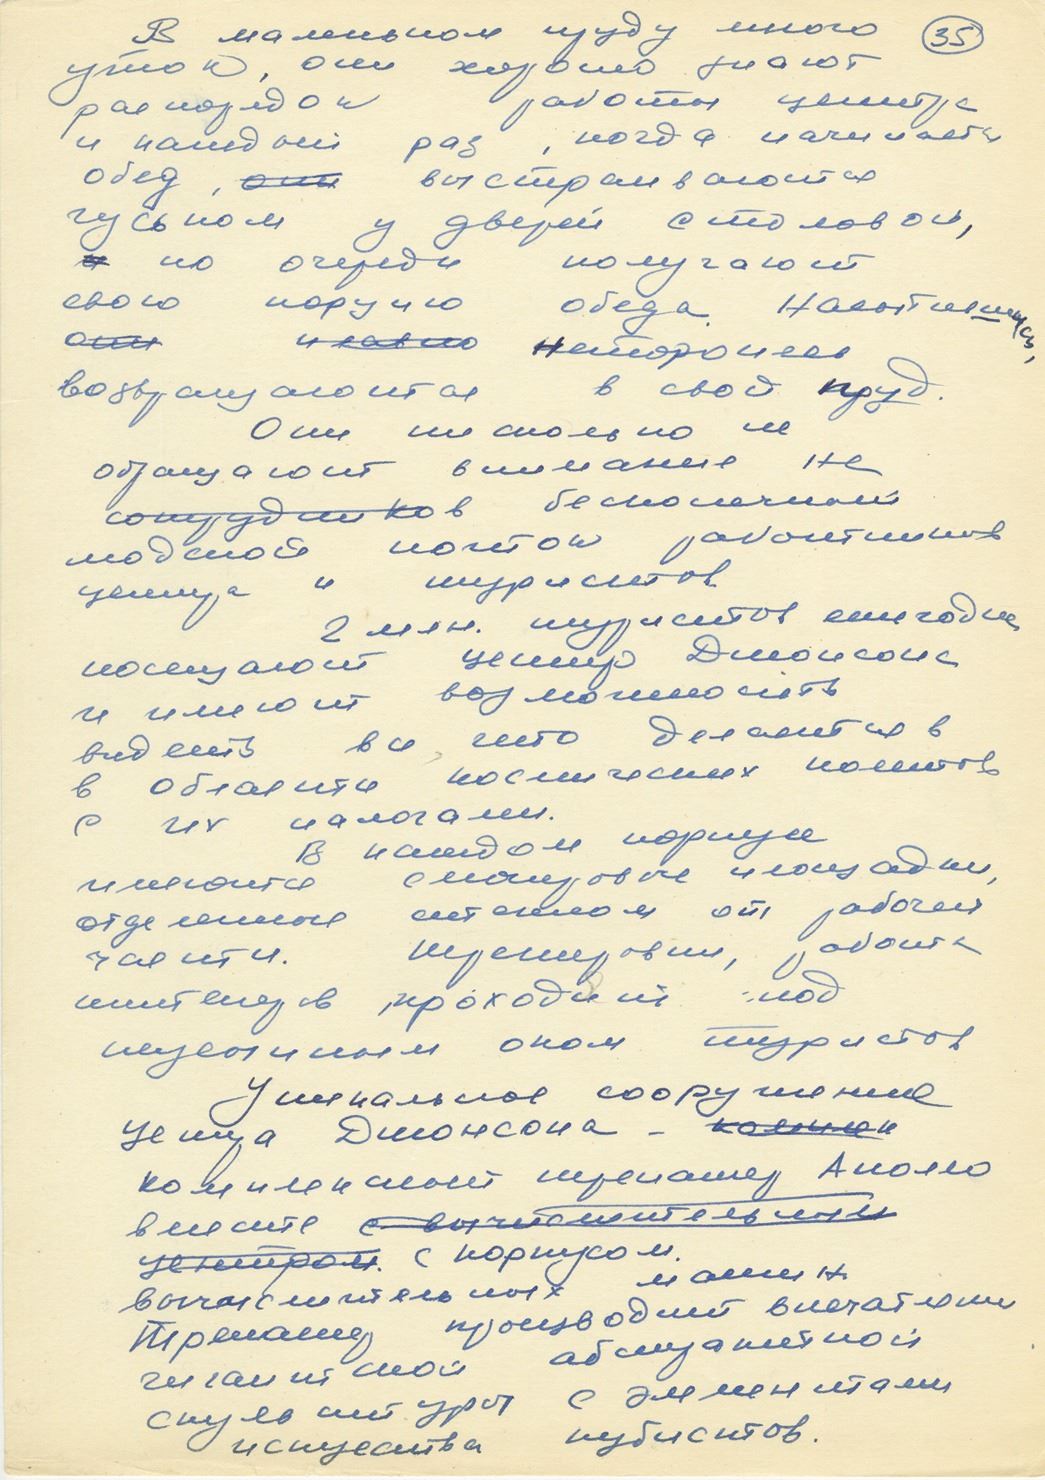 В маленьком пруду много 35
уток, они хорошо знают
распорядок работы центра
и каждый раз, когда начинается
обед, они выстраиваются
гуськом у дверей столовой,
и по очереди получают
свою порцию обеда. Насытившись,
они плавно неторопясь
возвращаются в свой пруд.
Они нисколько не
обращают внимание на
сотрудников бесконечный
людской поток работников
центра и туристов
2 млн. туристов ежегодно
посещают центр Джонсона
и имеют возможность
видеть все что делается в
в области космических полетов
с их налогами.
В каждом корпусе
имеются смотровые площадки,
отделенные стеклом от рабочей
части. Тренировки, работа
инженеров проходит под
неусыпным оком туристов
Уникальное сооружение
центра Джонсона -
комплексный тренажер Аполло
вместе с вычислительным
центром. с корпусом.
вычислительных машин
Тренажер производит впечатление
гигантской абстрактной
скульптуры с элементами
искусства кубистов.